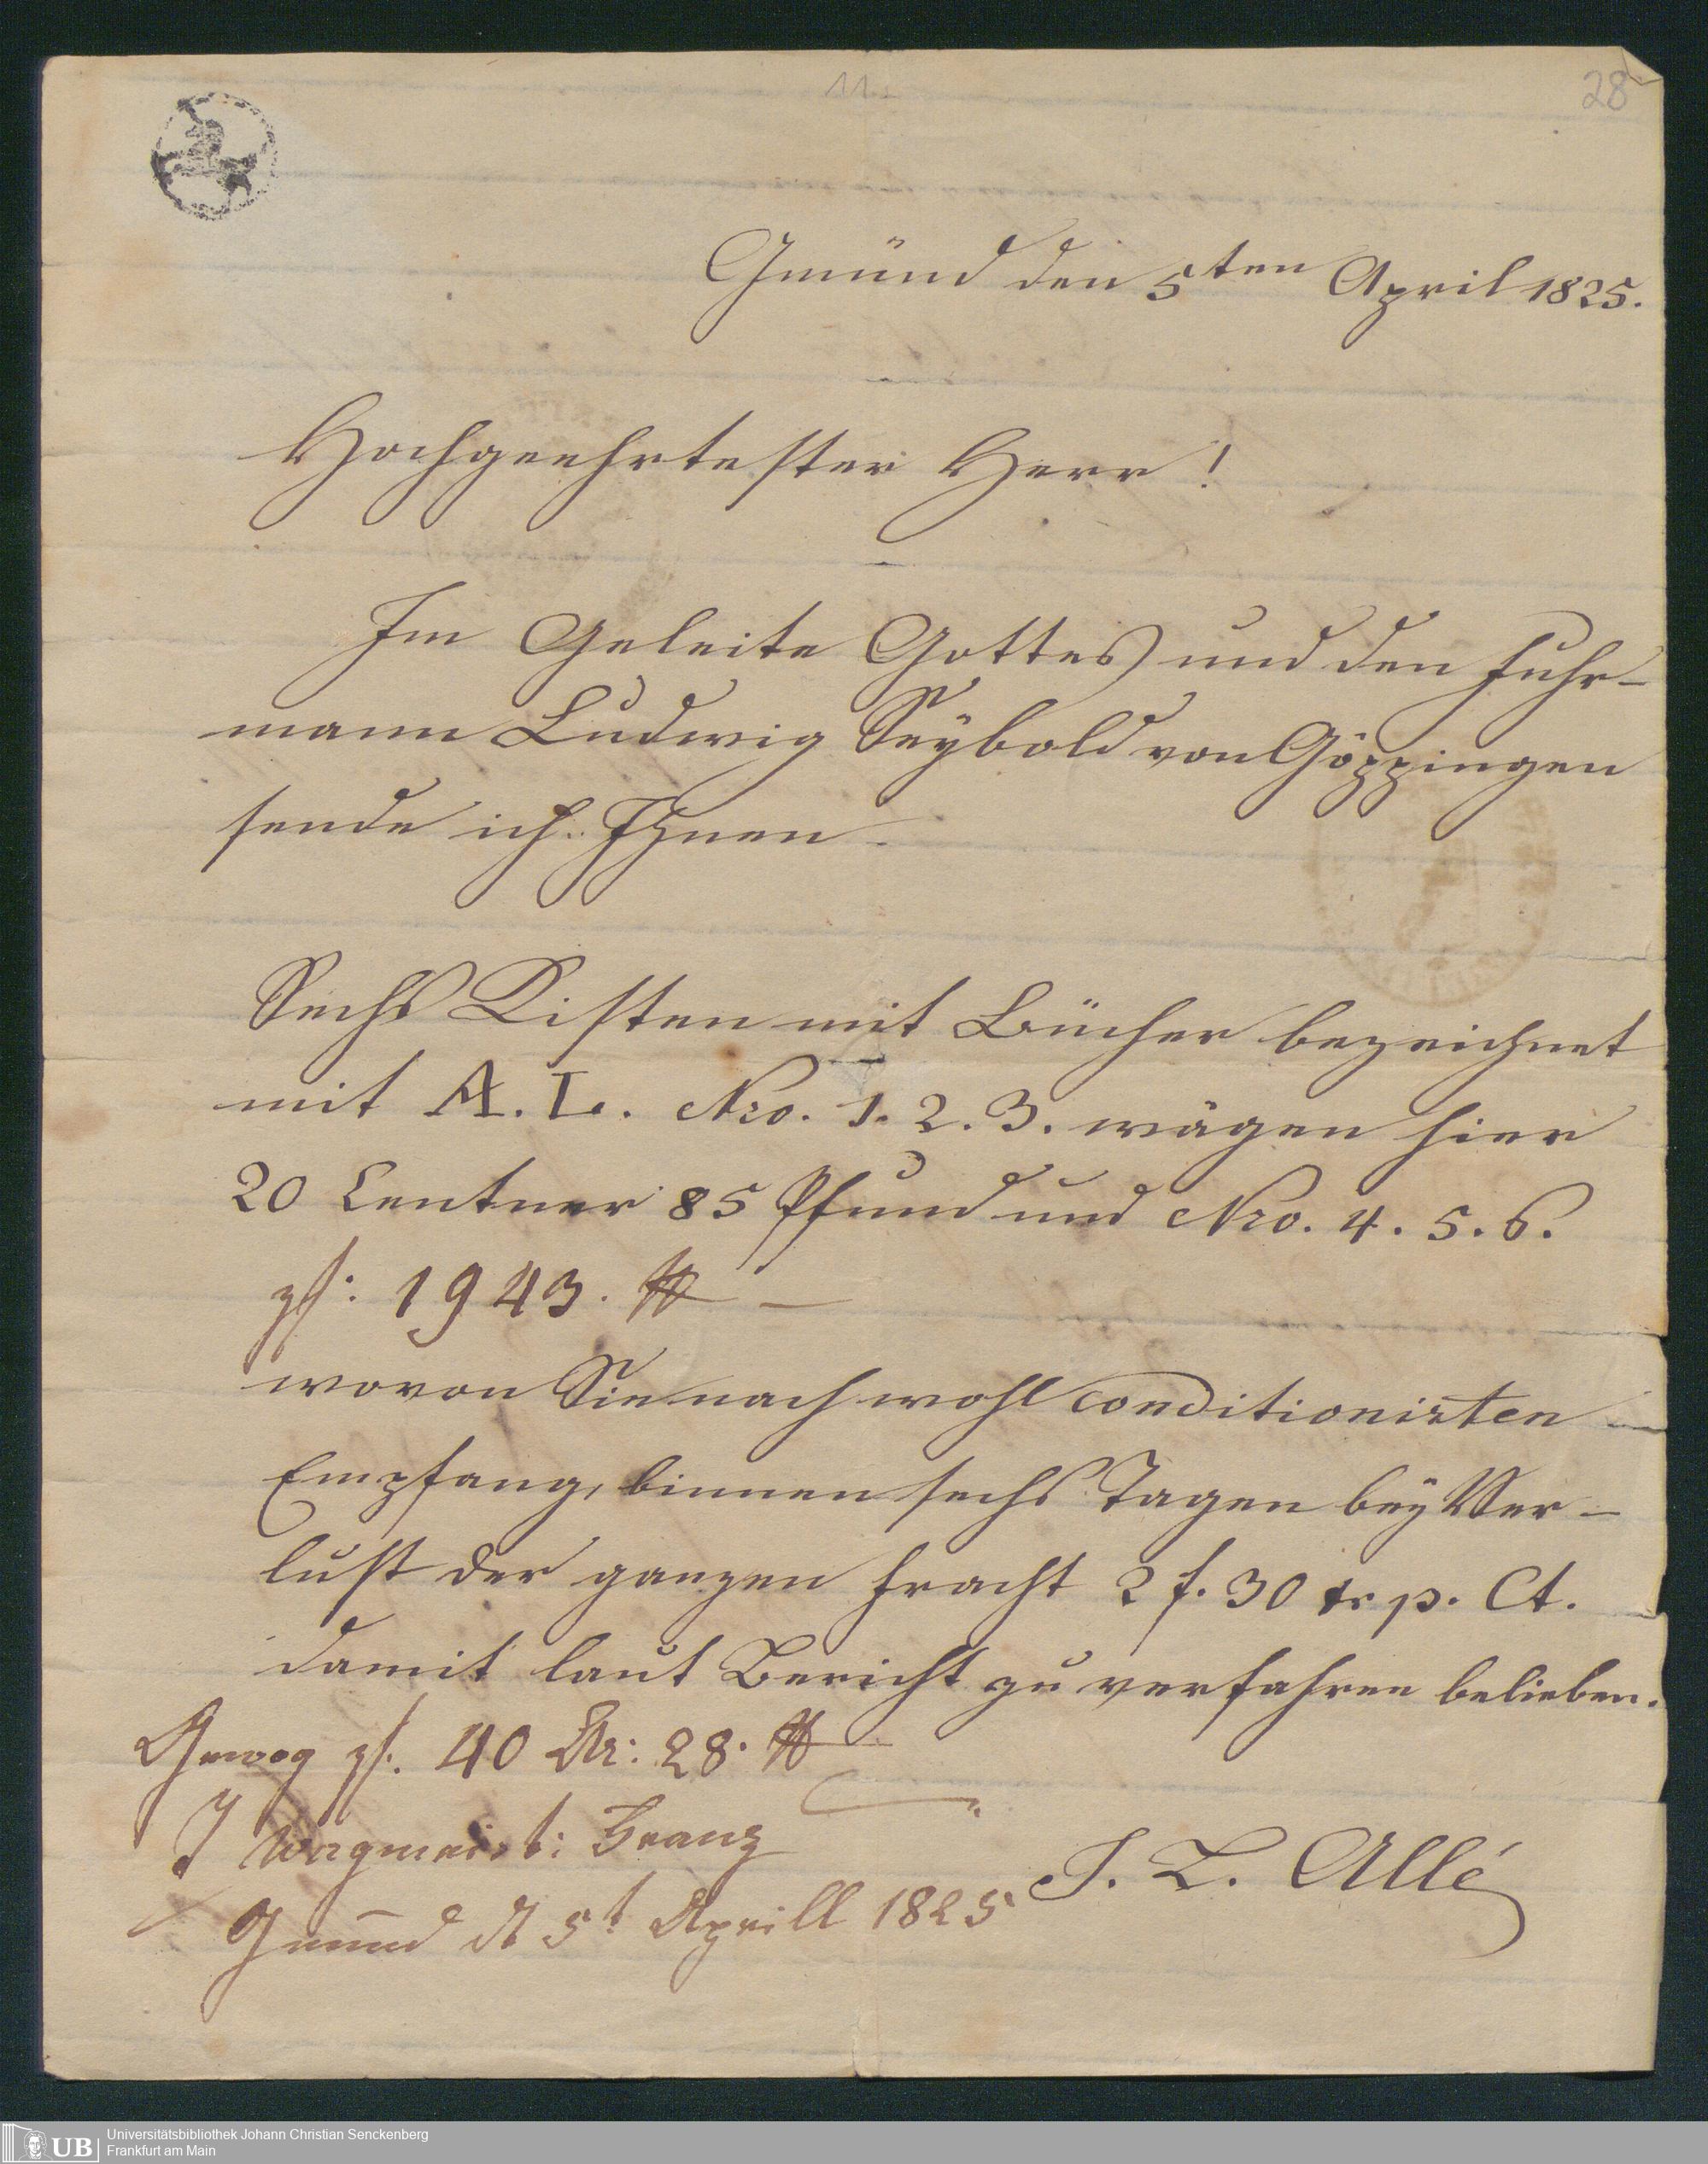 11.
28
Gmünd den 5ten April 1825.
Hochgeehrtester Herr!
Im Geleite Gottes und den Fuhr-
mann Ludwig Seybold von Göppingen
sende ich Ihnen
Sechs Kisten mit Bücher bezeichnet
mit A. L. Nro. 1. 2. 3. wägen hier
20 Centner 85 Pfund und Nro. 4. 5. 6.
zs: 1943. ℔ —
wovon Sie nach wohl conditionirten
Empfang, binnen sechs Tagen bey Ver-
lust der ganzen Fracht 2 f. 30 kr p. Ct.
damit laut Bericht zu verfahren belieben.
Gewog zs. 40 Ctr: 28. ℔
Wagmeist: Franz
J. L. Allé
Gmünd d 5t Aprill 1825
UB
Universitätsbibliothek Johann Christian Senckenberg
Frankfurt am Main